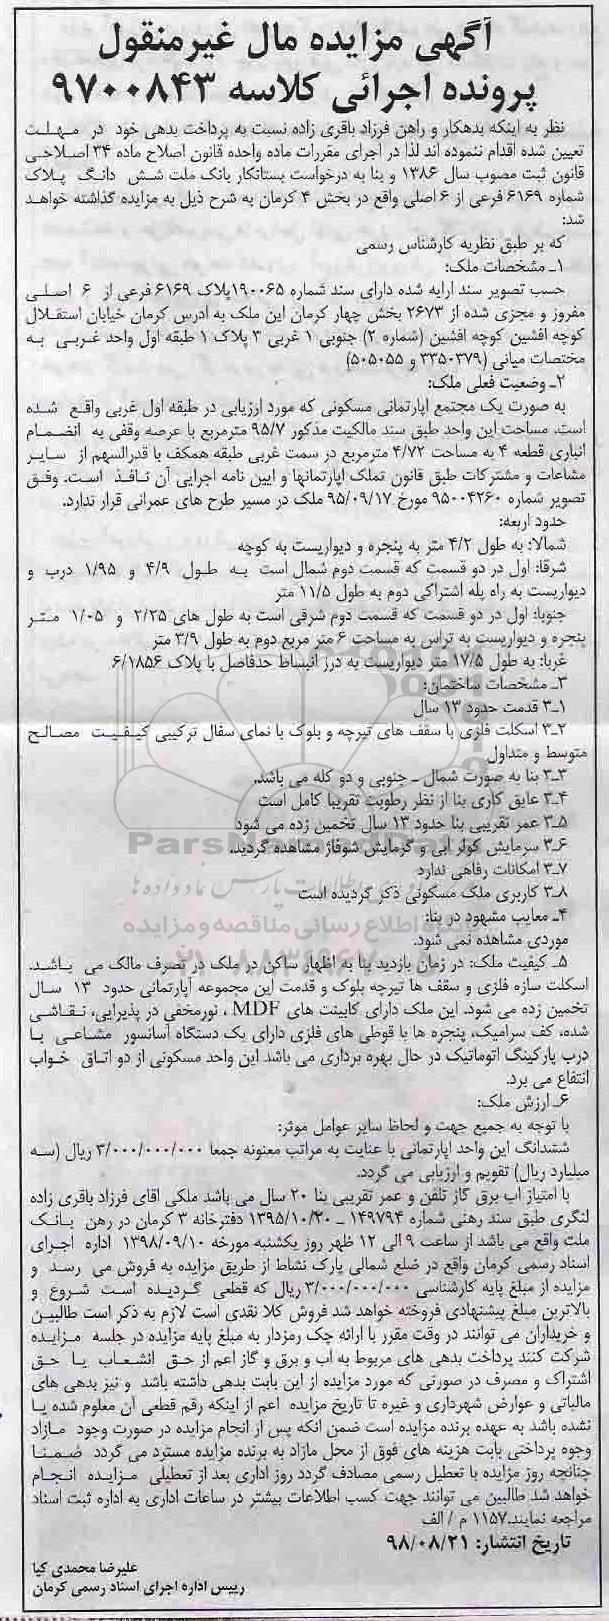 آگهی مزایده مال غیرمنقول
پرونده اجرائی کلاسه ۹۷۰۰۸۴۳
نظر به اینکه بدهکار و راهن فرزاد باقری زاده نسبت به پرداخت بدهی خود در مهلت
تعیین شده اقدام ننموده اند لذا در اجرای مقررات ماده واحده قانون اصلاح ماده ۳۴ اصلاحی
قانون ثبت مصوب سال ۱۳۸۶ و بنا به درخواست بستانکار بانک ملت شش دانگ پلاک
شماره ۶۱۶۹ فرعی از ۶ اصلی واقع در بخش ۴ کرمان به شرح ذیل به مزایده گذاشته خواهد
شد:
که بر طبق نظریه کارشناس رسمی
۱ـ مشخصات ملک:
حسب تصویر سند ارایه شده دارای سند شماره ۱۹۰۰۶۵ پلاک ۶۱۶۹ فرعی از ۶ اصلی
مفروز و مجزی شده از ۲۶۷۳ بخش چهار کرمان این ملک به ادرس کرمان خیابان استقلال
کوچه افشین کوچه افشین (شماره ۲) جنوبی ۱ غربی ۳ پلاک ۱ طبقه اول واحد غربی به
مختصات میانی (۳۳۵۰۳۷۹ و ۵۰۵۰۵۵)
۲ـ وضعیت فعلی ملک:
به صورت یک مجتمع اپارتمانی مسکونی که مورد ارزیابی در طبقه اول غربی واقع شده
است. مساحت این واحد طبق سند مالکیت مذکور ۹۵/۷ مترمربع با عرصه وقفی به انضمام
انباری قطعه ۴ به مساحت ۴/۷۲ مترمربع در سمت غربی طبقه همکف با قدرالسهم از سایر
مشاعات و مشترکات طبق قانون تملک اپارتمانها و ایین نامه اجرایی آن نافذ است. وفق
تصویر شماره ۹۵۰۰۴۲۶۰ مورخ ۹۵/۰۹/۱۷ ملک در مسیر طرح های عمرانی قرار ندارد.
حدود اربعه:
شمالا: به طول ۴/۲ متر به پنجره و دیواریست به کوچه
شرقا: اول در دو قسمت که قسمت دوم شمال است به طول ۴/۹ و ۱/۹۵ درب و
دیواریست به راه پله اشتراکی دوم به طول ۱۱/۵ متر
جنوبا: اول در دو قسمت که قسمت دوم شرقی است به طول های ۲/۲۵ و ۱/۰۵ متر
پنجره و دیواریست به تراس به مساحت ۶ متر مربع دوم به طول ۳/۹ متر
غربا: به طول ۱۷/۵ متر دیواریست به درز انبساط حدفاصل با پلاک ۶/۱۸۵۶
۳ـ مشخصات ساختمان:
۳ـ۱ قدمت حدود ۱۳ سال
۳ـ۲ اسکلت فلزی با سقف های تیرچه و بلوک با نمای سفال ترکیبی کیفیت مصالح
متوسط و متداول
۳ـ۳ بنا به صورت شمال ـ جنوبی و دو کله می باشد.
۳ـ۴ عایق کاری بنا از نظر رطوبت تقریبا کامل است
۳ـ۵ عمر تقریبی بنا حدود ۱۳ سال تخمین زده می شود
۳ـ۶ سرمایش کولر ابی و گرمایش شوفاژ مشاهده گردید.
۳ـ۷ امکانات رفاهی ندارد
۳ـ۸ کاربری ملک مسکونی ذکر گردیده است
۴ـ معایب مشهود در بنا:
موردی مشاهده نمی شود.
۵ـ کیفیت ملک: در زمان بازدید بنا به اظهار ساکن در ملک در تصرف مالک می باشد.
اسکلت سازه فلزی و سقف ها تیرچه بلوک و قدمت این مجموعه آپارتمانی حدود ۱۳ سال
تخمین زده می شود. این ملک دارای کابینت های MDF ، نورمخفی در پذیرایی، نقاشی
شده، کف سرامیک، پنجره ها با قوطی های فلزی دارای یک دستگاه آسانسور مشاعی با
درب پارکینگ اتوماتیک در حال بهره برداری می باشد این واحد مسکونی از دو اتاق خواب
انتفاع می برد.
۶ـ ارزش ملک:
با توجه به جمیع جهت و لحاظ سایر عوامل موثر:
ششدانگ این واحد اپارتمانی با عنایت به مراتب معنونه جمعا ۳/۰۰۰/۰۰۰/۰۰۰ ریال (سه
میلیارد ریال) تقویم و ارزیابی می گردد.
با امتیاز اب برق گاز تلفن و عمر تقریبی بنا ۲۰ سال می باشد ملکی اقای فرزاد باقری زاده
لنگری طبق سند رهنی شماره ۱۴۹۷۹۴ ـ ۱۳۹۵/۱۰/۲۰ دفترخانه ۳ کرمان در رهن بانک
ملت واقع می باشد از ساعت ۹ الی ۱۲ ظهر روز یکشنبه مورخه ۱۳۹۸/۰۹/۱۰ اداره اجرای
اسناد رسمی کرمان واقع در ضلع شمالی پارک نشاط از طریق مزایده به فروش می رسد و
مزایده از مبلغ پایه کارشناسی ۳/۰۰۰/۰۰۰/۰۰۰ ریال که قطعی گردیده است شروع و
بالاترین مبلغ پیشنهادی فروخته خواهد شد فروش کلا نقدی است لازم به ذکر است طالبین
و خریداران می توانند در وقت مقرر با ارائه چک رمزدار به مبلغ پایه مزایده در جلسه مزایده
شرکت کنند پرداخت بدهی های مربوط به اب و برق و گاز اعم از حق انشعاب یا حق
اشتراک و مصرف در صورتی که مورد مزایده از این بابت بدهی داشته باشد و نیز بدهی های
مالیاتی و عوارض شهرداری و غیره تا تاریخ مزایده اعم از اینکه رقم قطعی آن معلوم شده یا
نشده باشد به عهده برنده مزایده است ضمن انکه پس از انجام مزایده در صورت وجود مازاد
وجوه پرداختی بابت هزینه های فوق از محل مازاد به برنده مزایده مسترد می گردد ضمنا
چنانچه روز مزایده با تعطیل رسمی مصادف گردد روز اداری بعد از تعطیلی مزایده انجام
خواهد شد طالبین می توانند جهت کسب اطلاعات بیشتر در ساعات اداری به اداره ثبت اسناد
مراجعه نمایند. ۱۱۵۷ م / الف
تاریخ انتشار: ۹۸/۰۸/۲۱
علیرضا محمدی کیا
رییس اداره اجرای اسناد رسمی کرمان